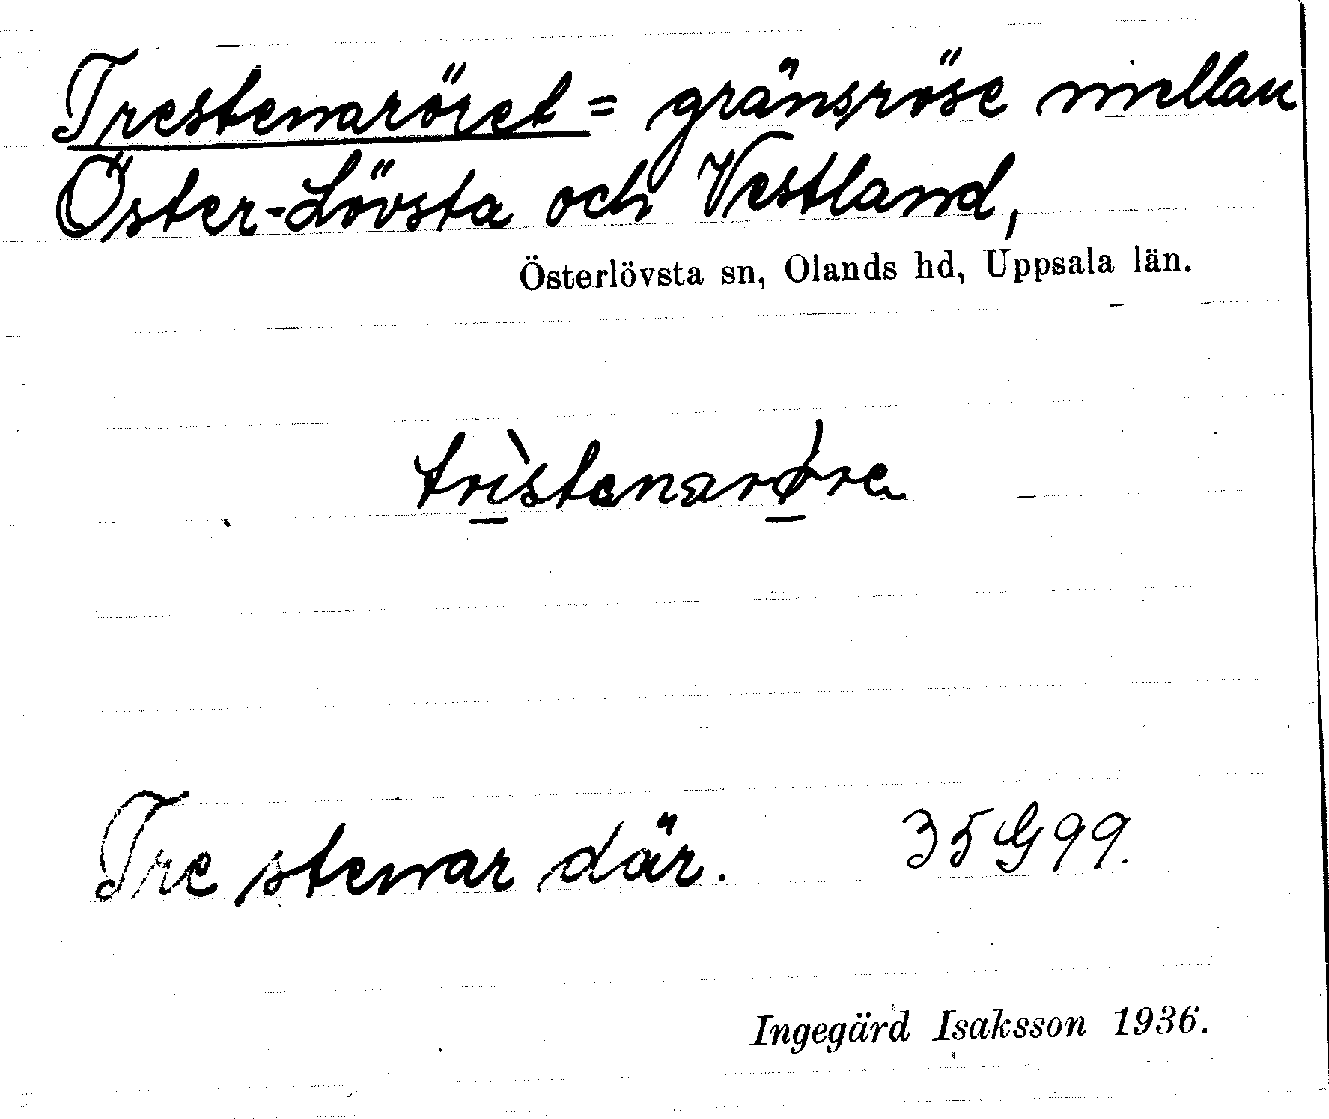 Trestenaröret = gränsröse mellan
Öster-Lövsta och Vestland,
Österlövsta sn, Olands hd, Uppsala län.
trìstenarøre
Tre stenar där. 35 G 99.
Ingegärd Isaksson 1936.